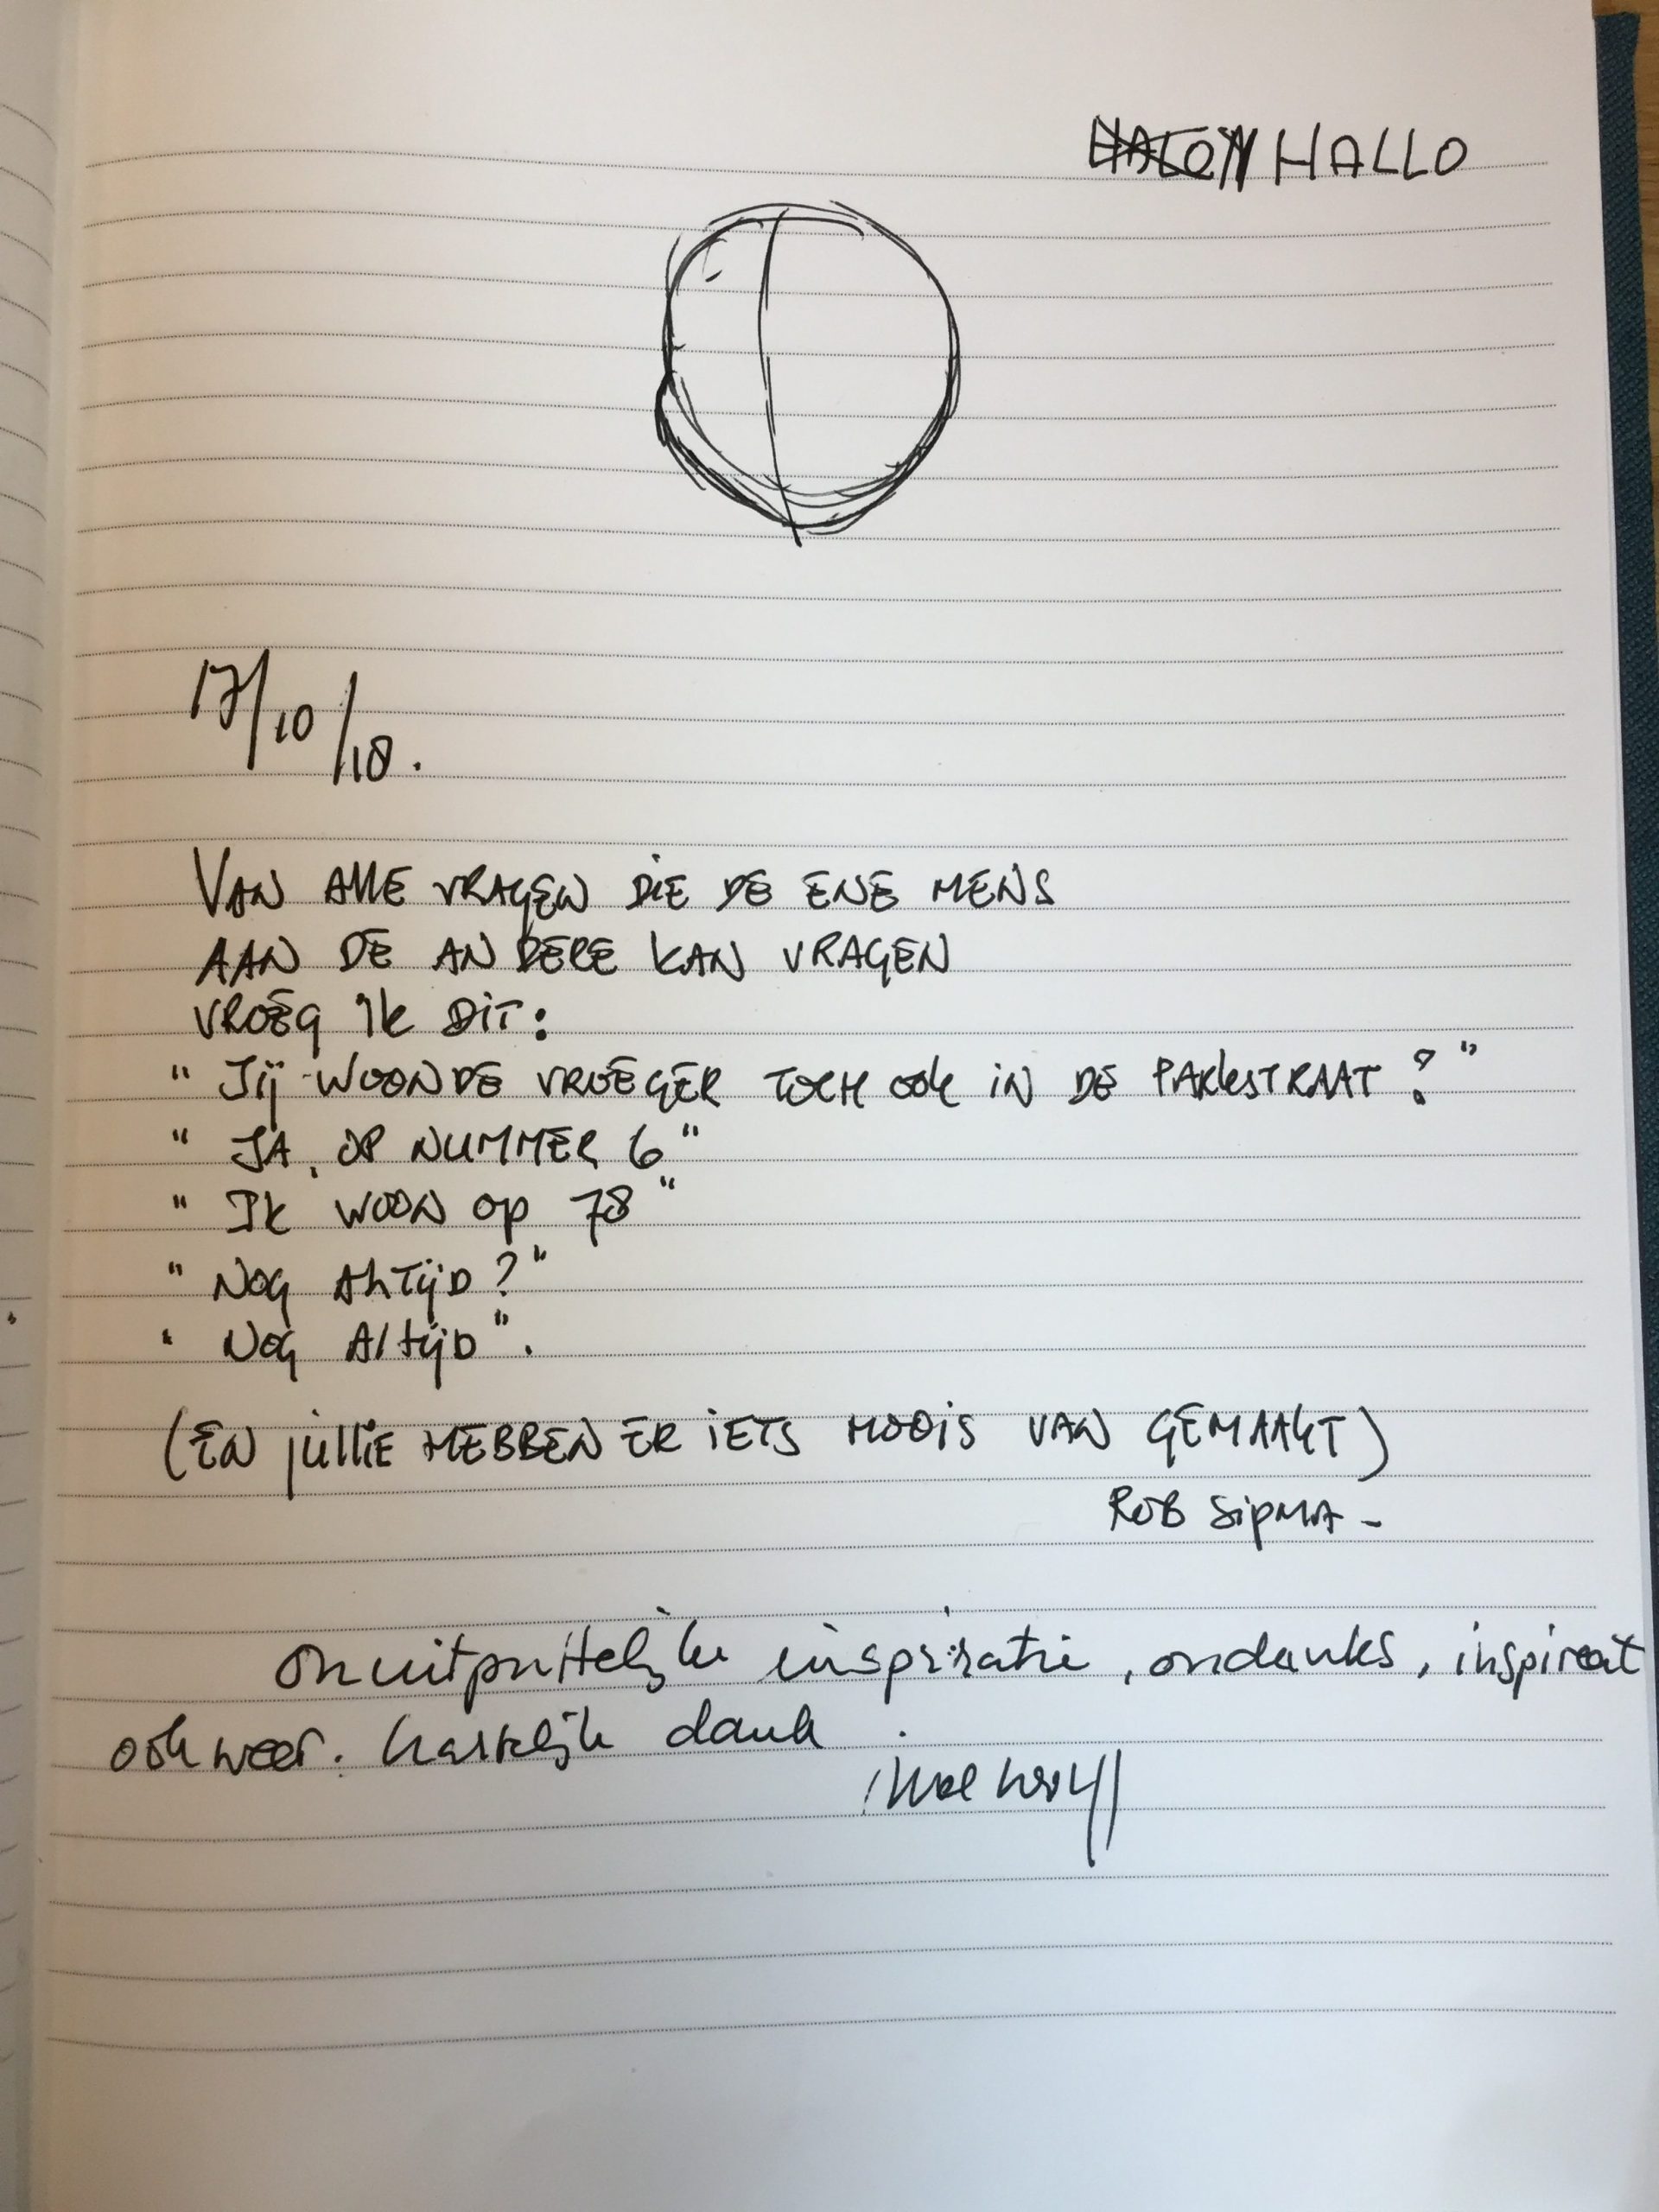 HALLO
17/10/18.
VAN ALLE VRAGEN DIE DE ENE MENS
AAN DE ANDERE KAN VRAGEN
VROEG IK DIT:
" JIJ WOONDE VROEGER TOCH OOK IN DE PARKSTRAAT ? "
" JA, OP NUMMER 6 "
" IK WOON OP 78 "
" NOG ALTIJD ? "
" NOG ALTIJD ".
(EN JULLIE HEBBEN ER IETS MOOIS VAN GEMAAKT)
ROB SIPMA -
Onuitputtelijke inspiratie, ondanks, inspireert
ook weer. hartelijk dank